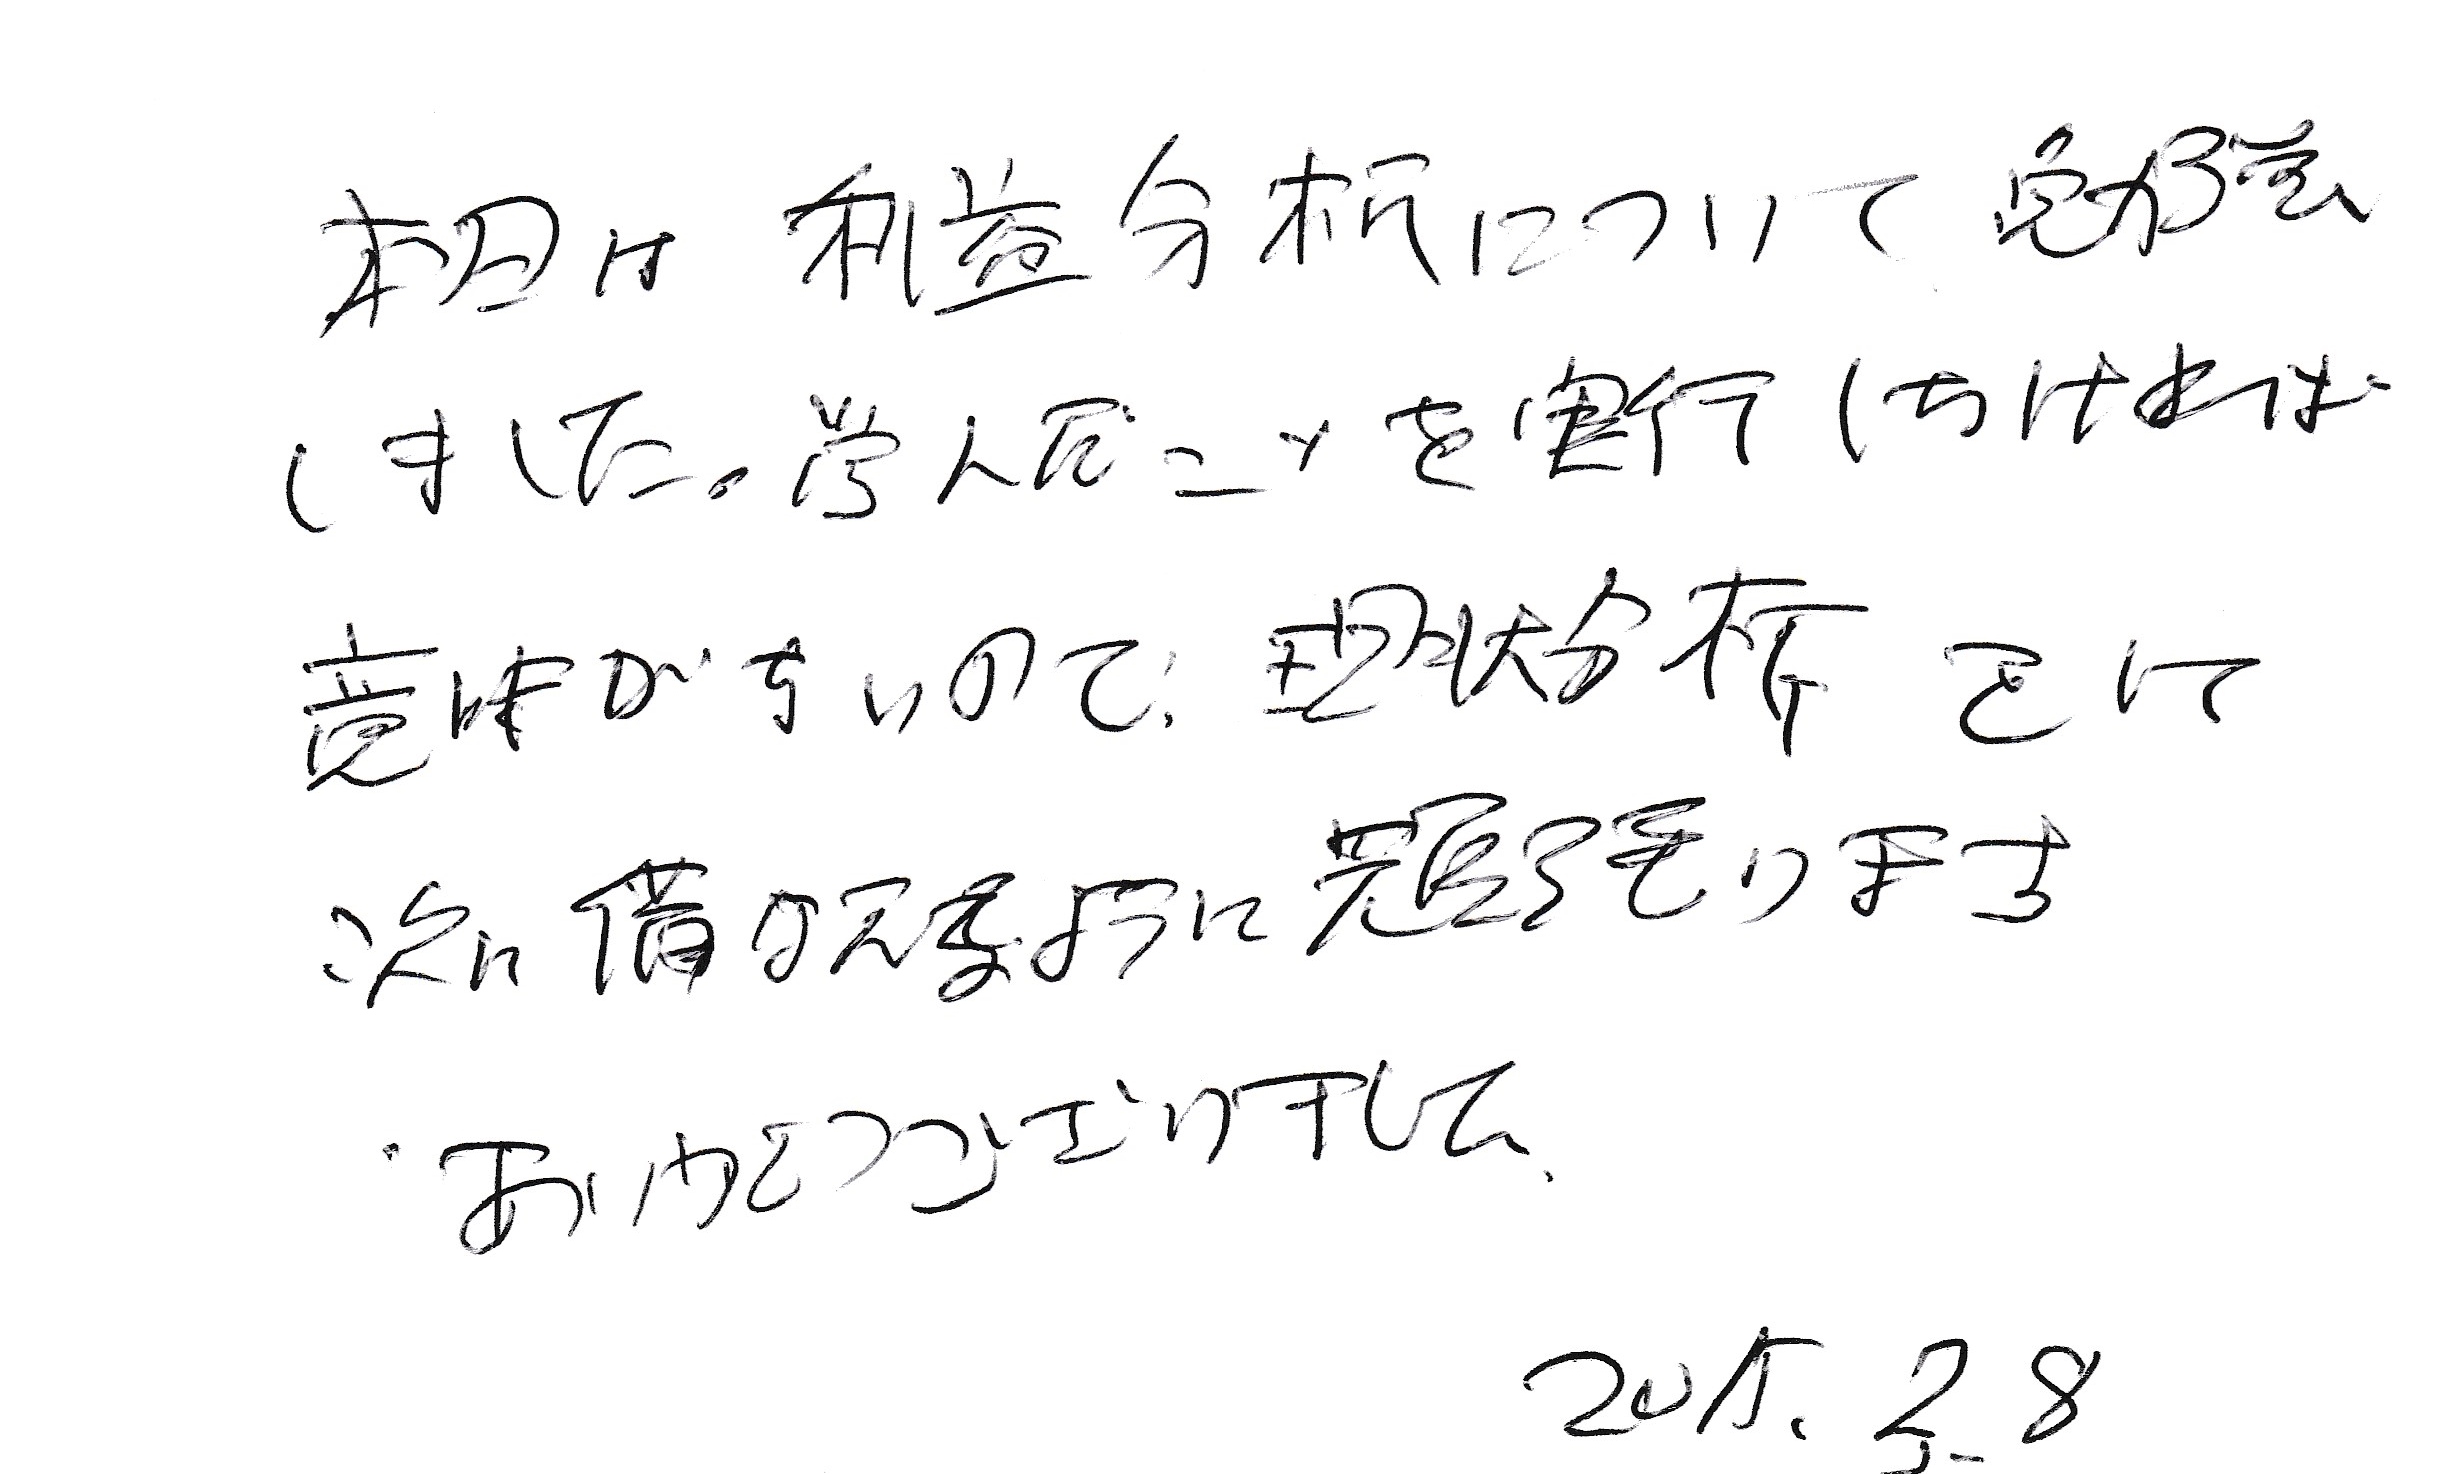 本日は 利益分析について 勉強
しました。学んだことを実行しなければ
意味がないので、現状分析をして
次に備えるように頑張ります
ありがとうございました、
2015. 2. 8